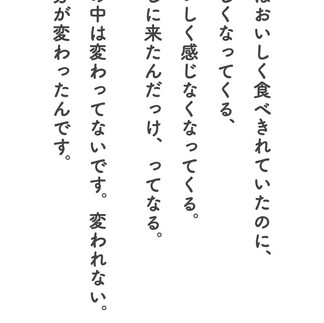 はおいしく食べきれていたのに、
しくなってくる、
いしく感じなくなってくる。
しに来たんだっけ、ってなる。
の中は変わってないです。変われない。
が変わったんです。